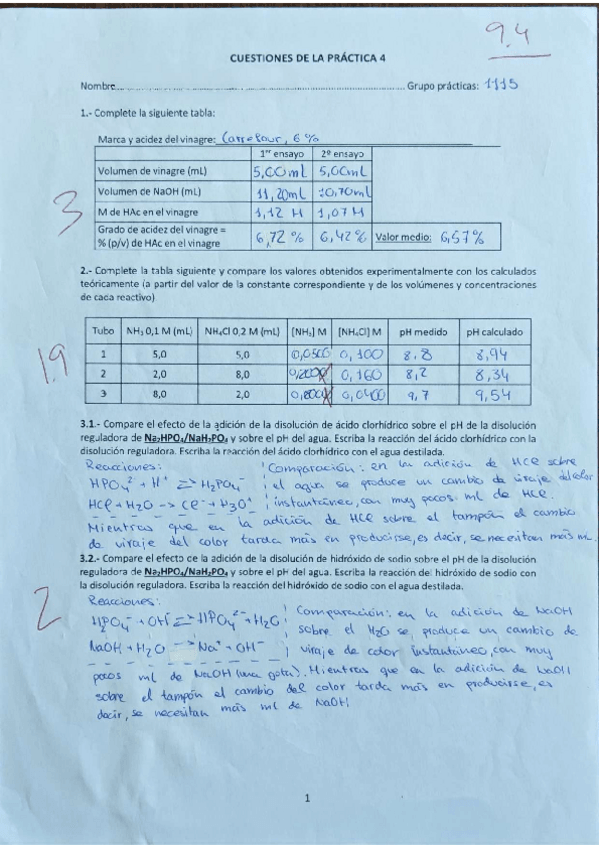 9.4
CUESTIONES DE LA PRÁCTICA 4
Nombre Grupo prácticas: 1115
1.- Complete la siguiente tabla:
Marca y acidez del vinagre: Carrefour, 6%
1er ensayo 2º ensayo
Volumen de vinagre (mL) 5,00mL 5,00mL
Volumen de NaOH (mL) 11,20mL 10,70mL
3
M de HAc en el vinagre 1,12 M 1,07 M
Grado de acidez del vinagre =
% (p/v) de HAc en el vinagre 6,72 % 6,42 % Valor medio: 6,57%
2.- Complete la tabla siguiente y compare los valores obtenidos experimentalmente con los calculados
teóricamente (a partir del valor de la constante correspondiente y de los volúmenes y concentraciones
de cada reactivo)
1.9
Tubo NH₃ 0,1 M (mL) NH₄Cl 0,2 M (mL) [NH₃] M [NH₄Cl] M pH medido pH calculado
1 5,0 5,0 0,0500 0,100 8,8 8,94
2 2,0 8,0 0,160 8,2 8,34
3 8,0 2,0 0,0400 9,7 9,54
3.1.- Compare el efecto de la adición de la disolución de ácido clorhídrico sobre el pH de la disolución
reguladora de Na₂HPO₄/NaH₂PO₄ y sobre el pH del agua. Escriba la reacción del ácido clorhídrico con la
disolución reguladora. Escriba la reacción del ácido clorhídrico con el agua destilada.
Reacciones: Comparación: en la adición de HCl sobre
HPO₄²⁻ + H⁺ ⇌ H₂PO₄⁻ el agua se produce un cambio de viraje del color
HCl + H₂O → Cl⁻ + H₃O⁺ instantáneo, con muy pocos ml de HCl.
Mientras que en la adición de HCl sobre el tampón el cambio
de viraje del color tarda más en producirse, es decir, se necesitan más mL.
3.2.- Compare el efecto de la adición de la disolución de hidróxido de sodio sobre el pH de la disolución
reguladora de Na₂HPO₄/NaH₂PO₄ y sobre el pH del agua. Escriba la reacción del hidróxido de sodio con
la disolución reguladora. Escriba la reacción del hidróxido de sodio con el agua destilada.
2
Reacciones: Comparación: en la adición de NaOH
H₂PO₄⁻ + OH⁻ ⇌ HPO₄²⁻ + H₂O sobre el H₂O se produce un cambio de
NaOH + H₂O → Na⁺ + OH⁻ viraje de color instantáneo, con muy
pocos ml de NaOH (una gota). Mientras que en la adición de NaOH
sobre el tampón el cambio del color tarda más en producirse, es
decir, se necesitan más ml de NaOH
1